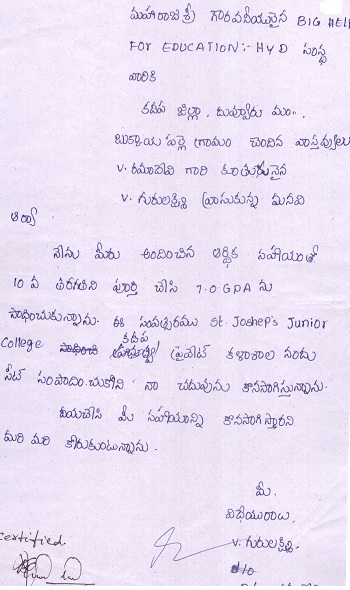 మహారాజశ్రీ గౌరవనీయులైన BIG HELP
FOR EDUCATION:- HYD సంస్థ
వారికి
కడప జిల్లా, దువ్వూరు మం..
బుక్కాయపల్లె గ్రామం చెందిన వాస్తవ్యులు
V. రమాదేవి గారి కూతురునైన
V. గురులక్ష్మి వ్రాసుకున్న మనవి
ఆర్యా
నేను మీరు అందించిన ఆర్థిక సహాయంతో
10 వ తరగతిని పూర్తి చేసి 7.0 GPA ను
సాధించుకున్నాను. ఈ సంవత్సరము St. Joshep's Junior
College కడప ప్రైవేట్ కళాశాల నందు
సీట్ సంపాదించుకొని నా చదువును కొనసాగిస్తున్నాను.
దయచేసి మీ సహాయాన్ని కొనసాగిస్తారని
మరి మరి కోరుకుంటున్నాను.
మీ.
విధేయురాలు.
V. గురులక్ష్మి.
certified
d/o